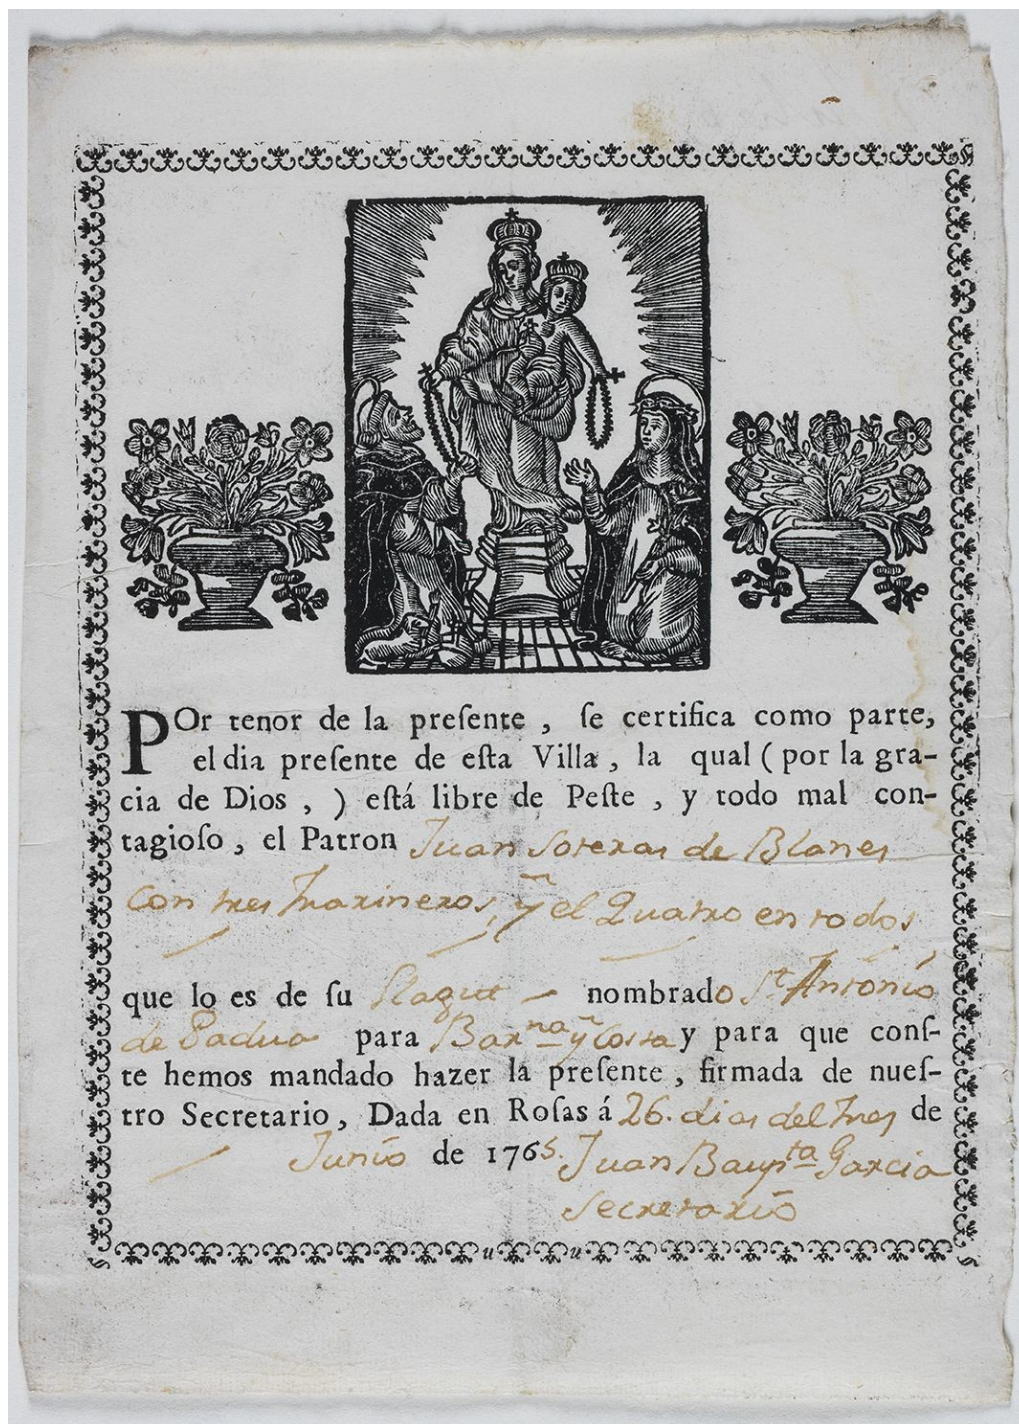 POr tenor de la preſente , ſe certifica como parte,
el dia preſente de eſta Villa , la qual ( por la gra-
cia de Dios , ) eſtá libre de Peſte , y todo mal con-
tagioſo , el Patron Juan Soteras de Blanes
con tres Marineros, y el Quatro en todos
que lo es de ſu Llagut nombrado St. Antonio
de Padua para Barna y Costa y para que conſ-
te hemos mandado hazer la preſente , firmada de nueſ-
tro Secretario, Dada en Roſas á 26. dias del Mes de
Junio de 1765. Juan Baupta Garcia
Secretario